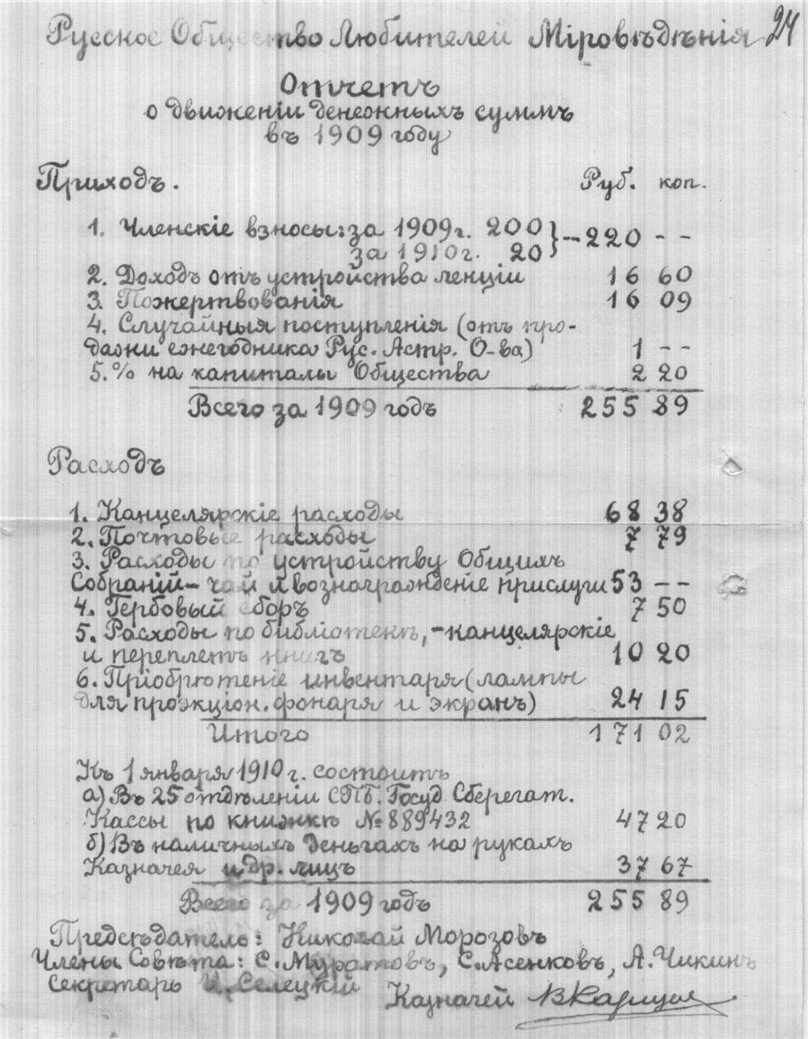 Русское Общество Любителей Міровѣдѣнія 24
Отчетъ
о движеніи денежныхъ суммъ
въ 1909 году
Приходъ. Руб. коп.
1. Членскіе взносы: за 1909 г. 200 } - 220 - -
за 1910 г. 20
2. Доходъ отъ устройства лекціи 16 60
3. Пожертвованія 16 09
4. Случайныя поступленія (отъ про-
дажи ежегодника Рус. Астр. О-ва) 1 - -
5. % на капиталы Общества 2 20
Всего за 1909 годъ 255 89
Расходъ
1. Канцелярскіе расходы 68 38
2. Почтовые расходы 7 79
3. Расходы по устройству Общихъ
Собраній - чай и вознагражденіе прислуги 53 - -
4. Гербовый сборъ 7 50
5. Расходы по библіотекѣ, - канцелярскіе
и переплетъ книгъ 10 20
6. Пріобрѣтеніе инвентаря (лампы
для проэкціон. фонаря и экранъ) 24 15
Итого 171 02
Къ 1 января 1910 г. состоитъ
а) Въ 25 отдѣленіи СПБ. Госуд Сберегат.
Кассы по книжкѣ № 889432 47 20
б) Въ наличныхъ деньгахъ на рукахъ
Казначея и др. лицъ 37 67
Всего за 1909 годъ 255 89
Предсѣдатель: Николай Морозовъ
Члены Совѣта: С. Муратовъ, С. Асенковъ, А. Чикинъ
Секретарь Селецкій Казначей